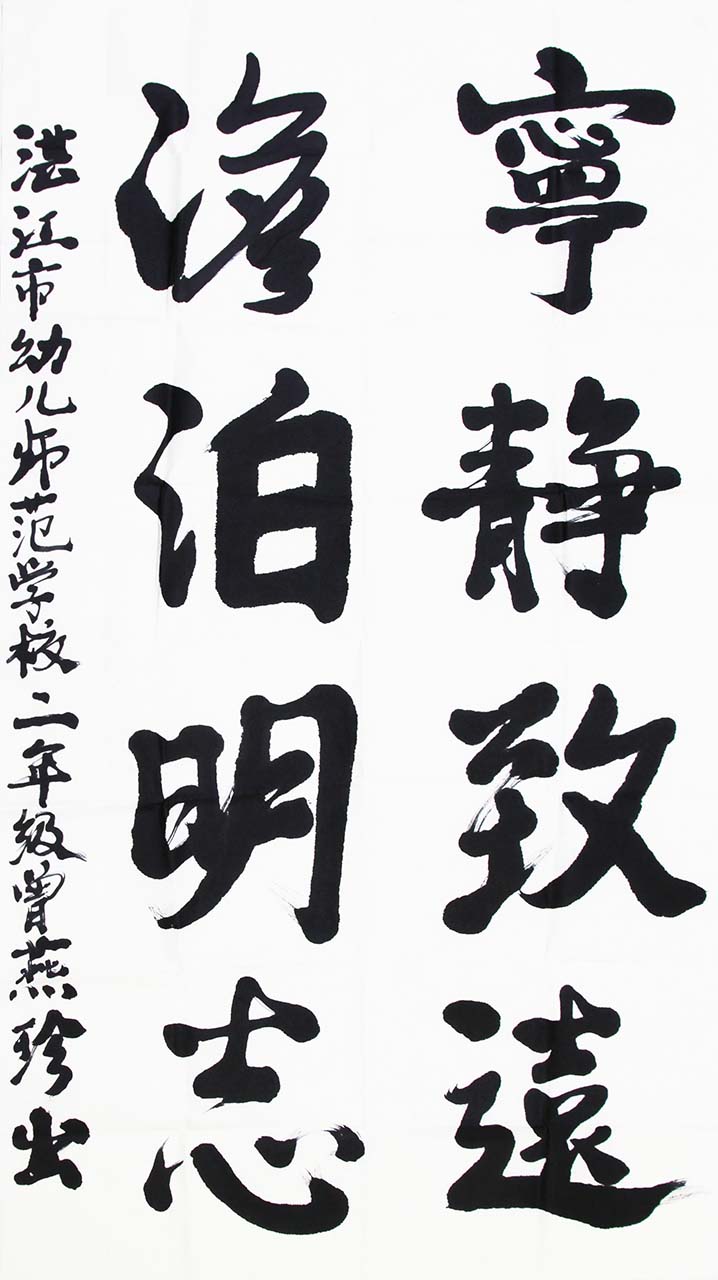 寧静致遠
澹泊明志
湛江市幼儿师范学校二年级曾燕珍书